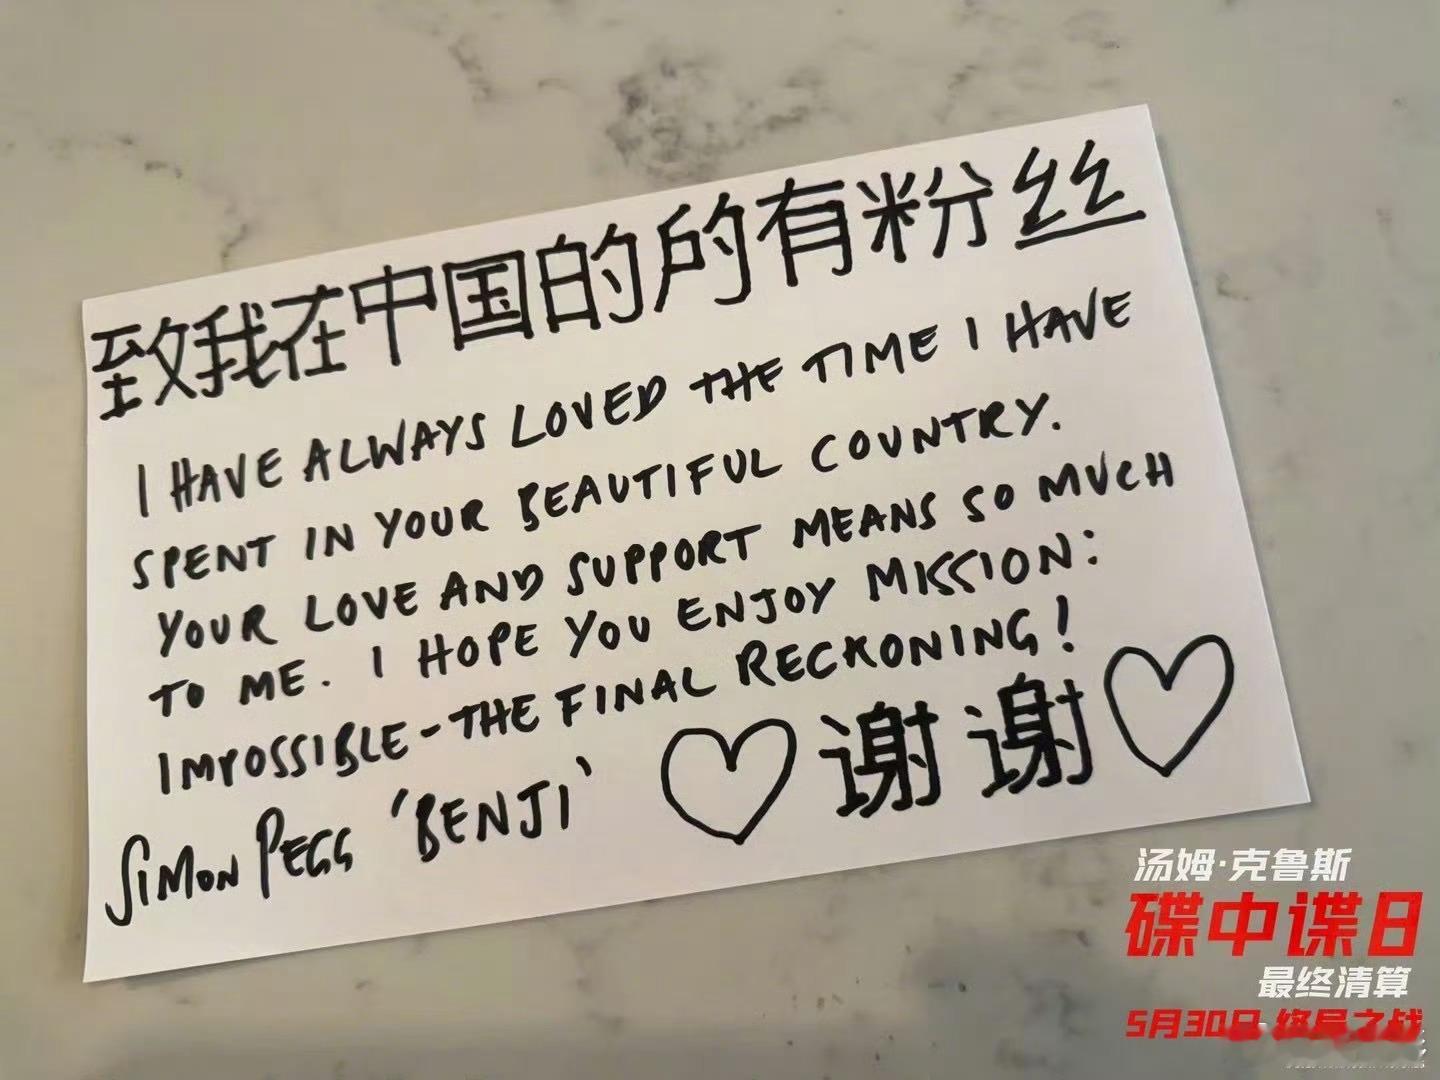 致我在中国的所有粉丝
I HAVE ALWAYS LOVED THE TIME I HAVE
SPENT IN YOUR BEAUTIFUL COUNTRY.
YOUR LOVE AND SUPPORT MEANS SO MUCH
TO ME. I HOPE YOU ENJOY MISSION:
IMPOSSIBLE - THE FINAL RECKONING!
SIMON PEGG 'BENJI' ♡ 谢谢 ♡
汤姆·克鲁斯
碟中谍8
最终清算
5月30日 终局之战